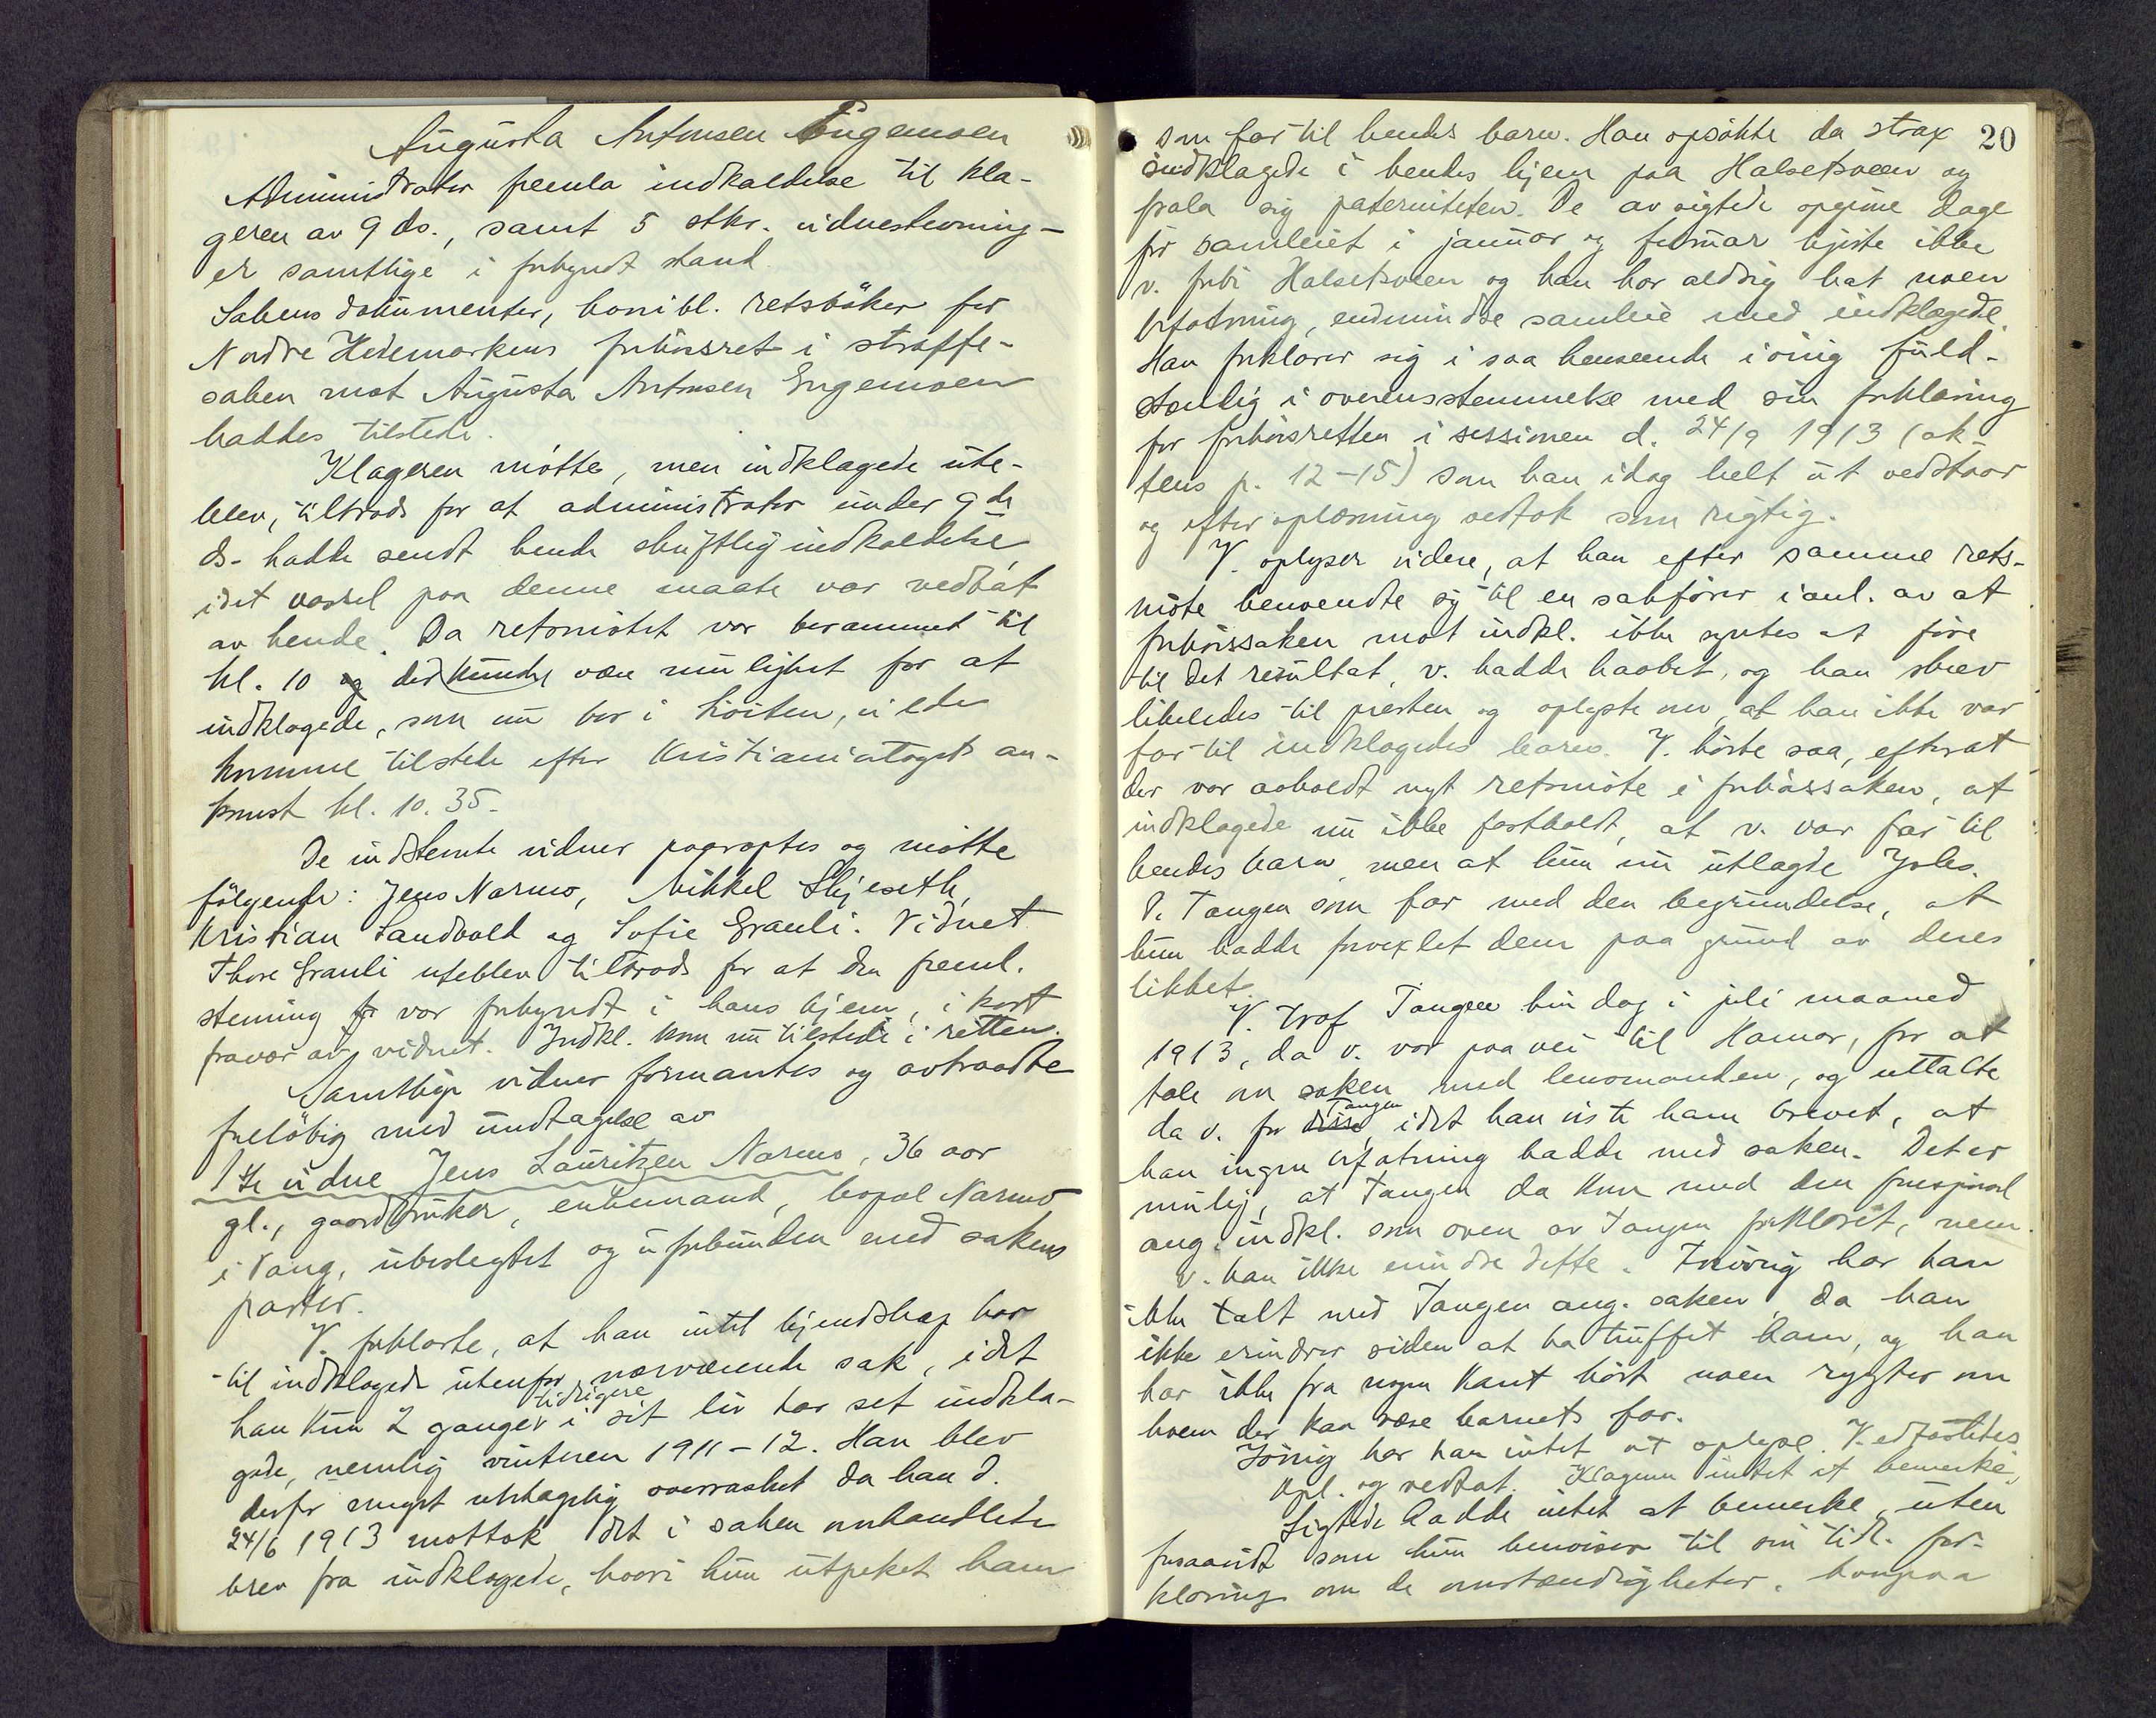 Augusta Antonsen Engemoen
Administrator freml a indkaldelse til kla-
geren av 9 ds., samt 5 stkr. vidnestevning-
er samtlige i forkyndt stand.
Sakens dokumenter, hvoribl. retsböker for
Nordre Hedemarkens forhörsret i straffe-
saken mot Augusta Antonsen Engemoen
haddes tilstede.
Klageren mötte, men indklagede ute-
blev, tiltrods for at administrator under 9de
ds. hadde sendt hende skriftlig indkaldelse,
idet varsel paa denne maate var vedtat
av hende. Da retsmötet var berammet til
kl. 10 og det kunde være mulighet for at
indklagede, som nu bor i Löiten, vilde
komme tilstede efter Kristianiatogets an-
komst kl. 10.35.
De indstevnte vidner paaroptes og mötte
fölgende: Jens Narmo, Mikkel Skjeseth,
Kristian Sandvold og Sofie Grauli. Vidnet
Thore Grauli uteblev tiltrods for at den freml.
stevning for var forkyndt i hans hjem, i kort
fravær av vidnet. Indkl. kom nu tilstede i retten.
Samtlige vidner formantes og avtraadte
forelöbig med undtagelse av
1ste vidne Jens Lauritzen Narmo, 36 aar
gl., gaardbruker, enkemand, bopæl Narmo
i Vang, ubeslegtet og uforbunden med sakens
parter.
V. forklarte, at han intet kjendskap har
til indklagede utenfor nærværende sak, idet
han kun 2 ganger tidligere i sit liv har set indkla-
gede, nemlig vinteren 1911-12. Han blev
derfor meget ubehagelig overrasket da han d.
24/6 1913 mottok det i saken omhandlede
brev fra indklagede, hvori hun utpeket ham
20
som far til hendes barn. Han opsökte da strax
indklagede i hendes hjem paa Halsetsveen og
frala sig paterniteten. De av sigtede opgivne dage
for samleiet i januar og februar kjörte ikke
v. forbi Halsetsveen og han har aldrig hat noen
befatning, endmindre samleie med indklagede.
Han forklarer sig i saa henseende iövrig fuld-
stændig i overensstemmelse med sin forklaring
for forhörsretten i sessionen d. 24/9 1913 (ak-
tens p. 12-15) som han idag helt ut vedstaar
og efter oplæsning vedtok som rigtig.
V. oplyser videre, at han efter samme rets-
möte henvendte sig til en sakförer i anl. av at
forhörssaken mot indkl. ikke syntes at före
til det resultat, v. hadde haabet, og han skrev
likeledes til presten og oplyste om, at han ikke var
far til indklagedes barn. V. hörte saa, efterat
der var avholdt nyt retsmöte i forhörssaken, at
indklagede nu ikke fastholdt, at v. var far til
hendes barn, men at hun nu utlagde Johs.
P. Tangen som far med den begrundelse, at
hun hadde forvexlet dem paa grund av deres
likhet.
V. traf Tangen hin dag i juli maaned
1913, da v. var paa vei til Hamar, for at
tale om saken med lensmanden, og uttalte
da v. for disse Tangen, idet han viste ham brevet, at
han ingen befatning hadde med saken. Det er
mulig, at Tangen da kom med den forespörsel
ang. indkl. som oven av Tangen forklaret, men
v. kan ikke erindre dette. Forövrig har han
ikke talt med Tangen ang. saken, da han
ikke erindrer siden at ha truffet ham, og han
har ikke fra nogen kant hört noen rygter om
hvem der kan være barnets far.
Iövrig har han intet at oplyse. V. edfæstedes
Opl. og vedtat. Klageren intet at bemerke.
Sigtede hadde intet at bemerke, uten
forsaavidt som hun henviser til sin tidl. for-
klaring om de omstændigheter, hvorpaa